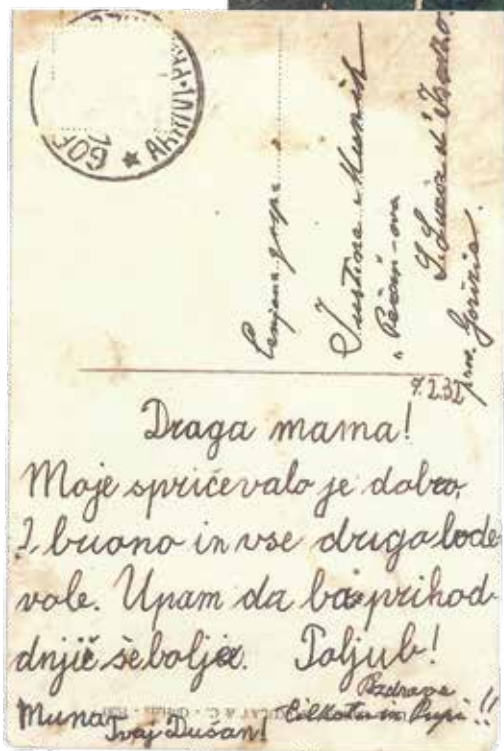 GOR
Cenjena gospa
Justina Munih
"Pečan-ova
S. Lucia d'Isonzo.
prov. Gorizia.
7.2.32
Draga mama!
Moje spričevalo je dobro,
2 buono in vse drugo lode
vole. Upam da bo prihod-
dnjič še bolje. Poljub!
Pozdrave
Munaz Cilkotu in Pupi!!
Tvoj Dušan!